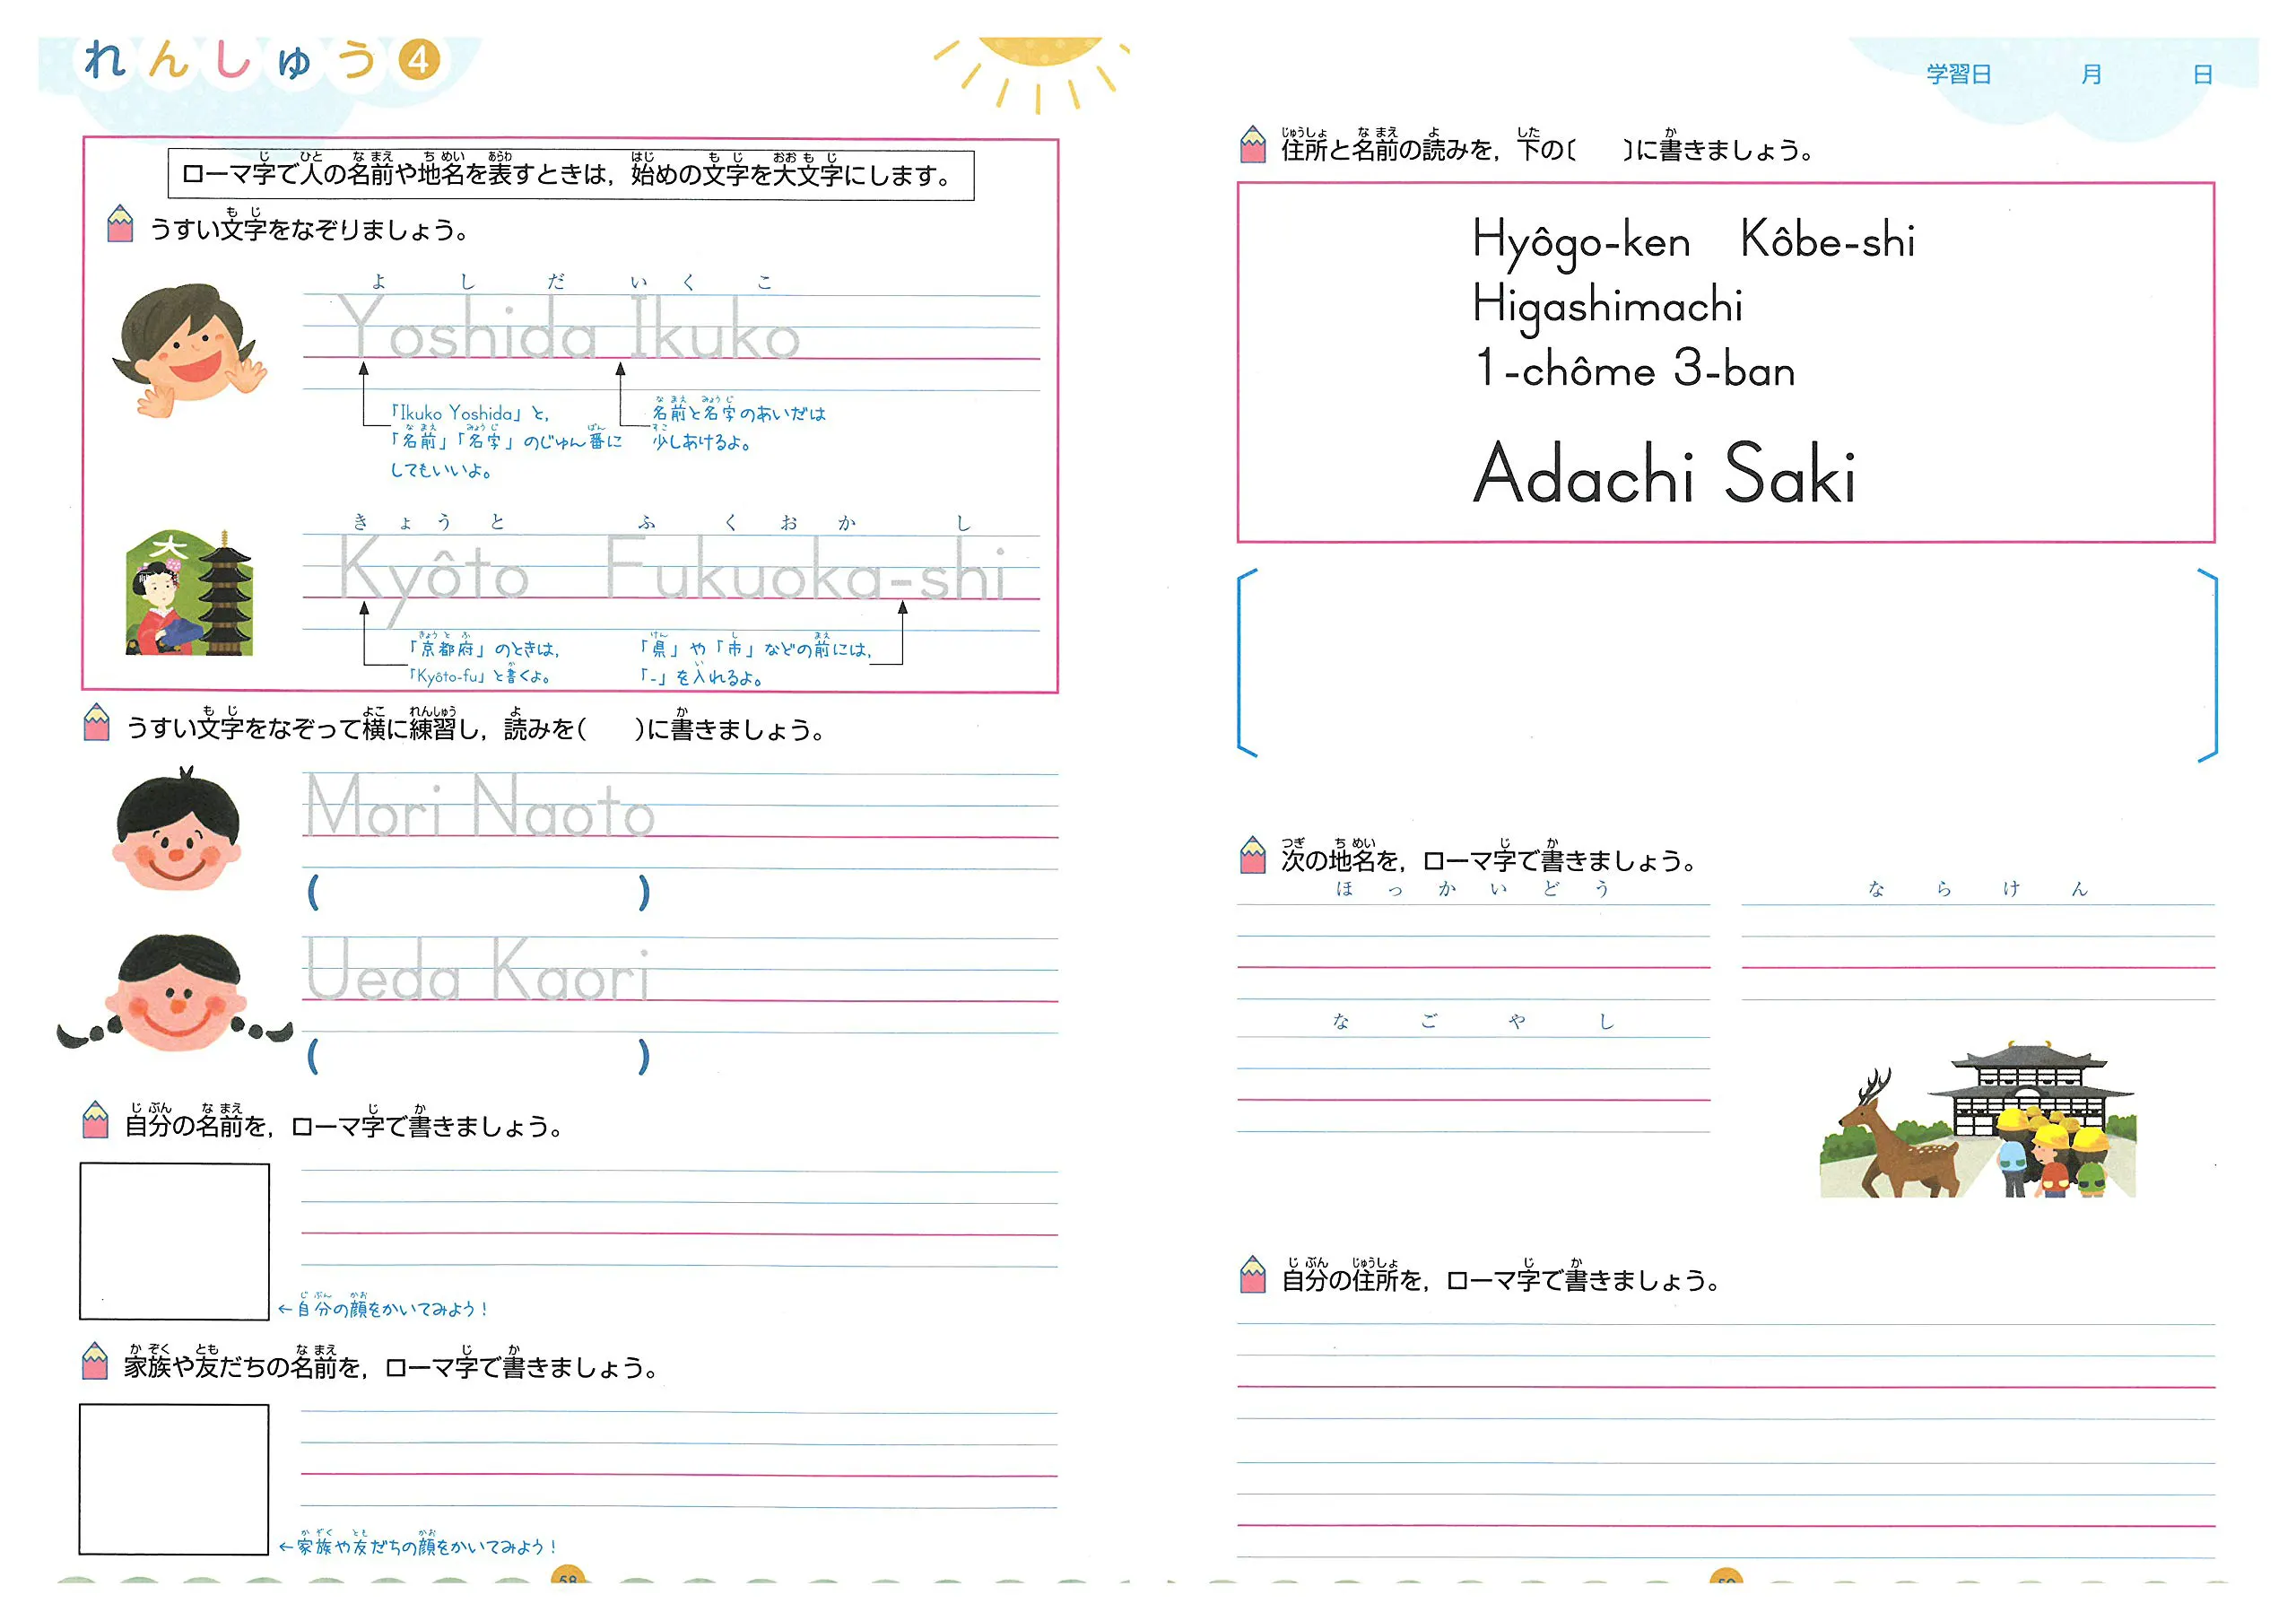 れんしゅう4
ローマ字で人の名前や地名を表すときは，始めの文字を大文字にします。
うすい文字をなぞりましょう。
よしだ いくこ
Yoshida Ikuko
「Ikuko Yoshida」と，
「名前」「名字」のじゅん番に
してもいいよ。
名前と名字のあいだは
少しあけるよ。
大
きょうと ふくおか し
Kyôto Fukuoka-shi
「京都府」のときは，
「Kyôto-fu」と書くよ。
「県」や「市」などの前には，
「-」を入れるよ。
うすい文字をなぞって横に練習し，読みを（　）に書きましょう。
Mori Naoto
（　）
Ueda Kaori
（　）
自分の名前を，ローマ字で書きましょう。
←自分の顔をかいてみよう！
家族や友だちの名前を，ローマ字で書きましょう。
←家族や友だちの顔をかいてみよう！
58
学習日　月　日
住所と名前の読みを，下の〔　〕に書きましょう。
Hyôgo-ken Kôbe-shi
Higashimachi
1-chôme 3-ban
Adachi Saki
〔　〕
次の地名を，ローマ字で書きましょう。
ほっかいどう
ならけん
なごやし
自分の住所を，ローマ字で書きましょう。
59